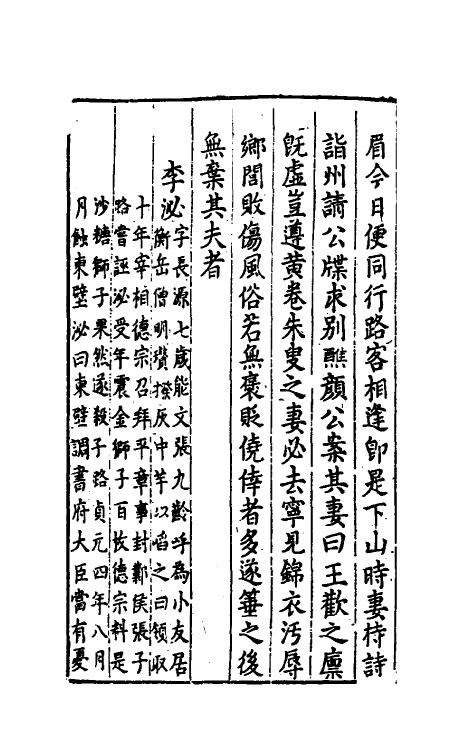 眉今日便同行路客相逢即是下山時妻持詩
詣州請公牒求別醮顏公案其妻曰王歡之廪
既虛豈遵黄卷朱叟之妻必去寧見錦衣汚辱
鄉閭敗傷風俗若無褒貶僥倖者多遂箠之後
無棄其夫者
李泌字長源七歲能文張九齡呼為小友居
衡岳僧明瓚撥灰中芋以啗之曰領取
十年宰相德宗召拜平章事封鄴侯張子
路嘗誣泌受年震金獅子百枚德宗料是
沙糖獅子果然遂殺子路貞元四年八月
月蝕東壁泌曰東壁調書府大臣當有憂